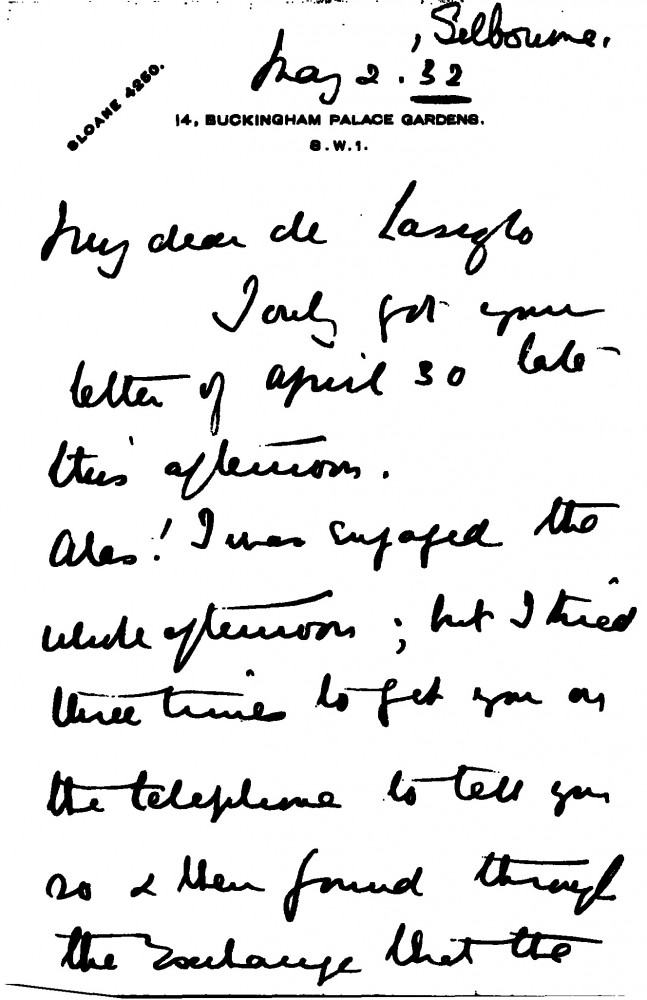 , Selbourne.
May 2. 32
SLOANE 4250.
14, BUCKINGHAM PALACE GARDENS.
S.W.1.
My dear de Laszlo
I only got your
letter of April 30 late
this afternoon.
Alas! I was engaged the
whole afternoon; but I tried
three times to get you on
the telephone to tell you
so & then found through
the Exchange that the